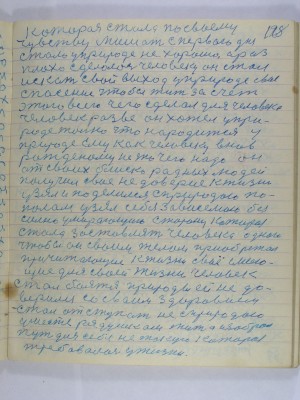 118
которая стала по своему
чувству мешать с первого дня
стало у природе не хорошо, а раз
плохо сделалось человеку он стал
искать свой выход у природе свое
спасение чтобы жить за счет
этого всего чего сделал для человека
человек разве он хотел у при-
роде только что народится у
природе ему как человеку вновь
рожденому не то чего надо он
от своих близко родных людей
получил свое не доверие к жизни
узял и поделился с природою по-
полам узял себе зависимою бы
силно умирающую сторону которая
стала заставлять человека одним
чтобы он своим телом приобретал
причитающее к жизни своё имею-
щие для своей жизни человек
стал боятся природы ей не до-
верили со своим здоровием
стал отступать не с природою
уместе рядушком жить а избрал
путь для себе не такую которая
требовалась у жизни.